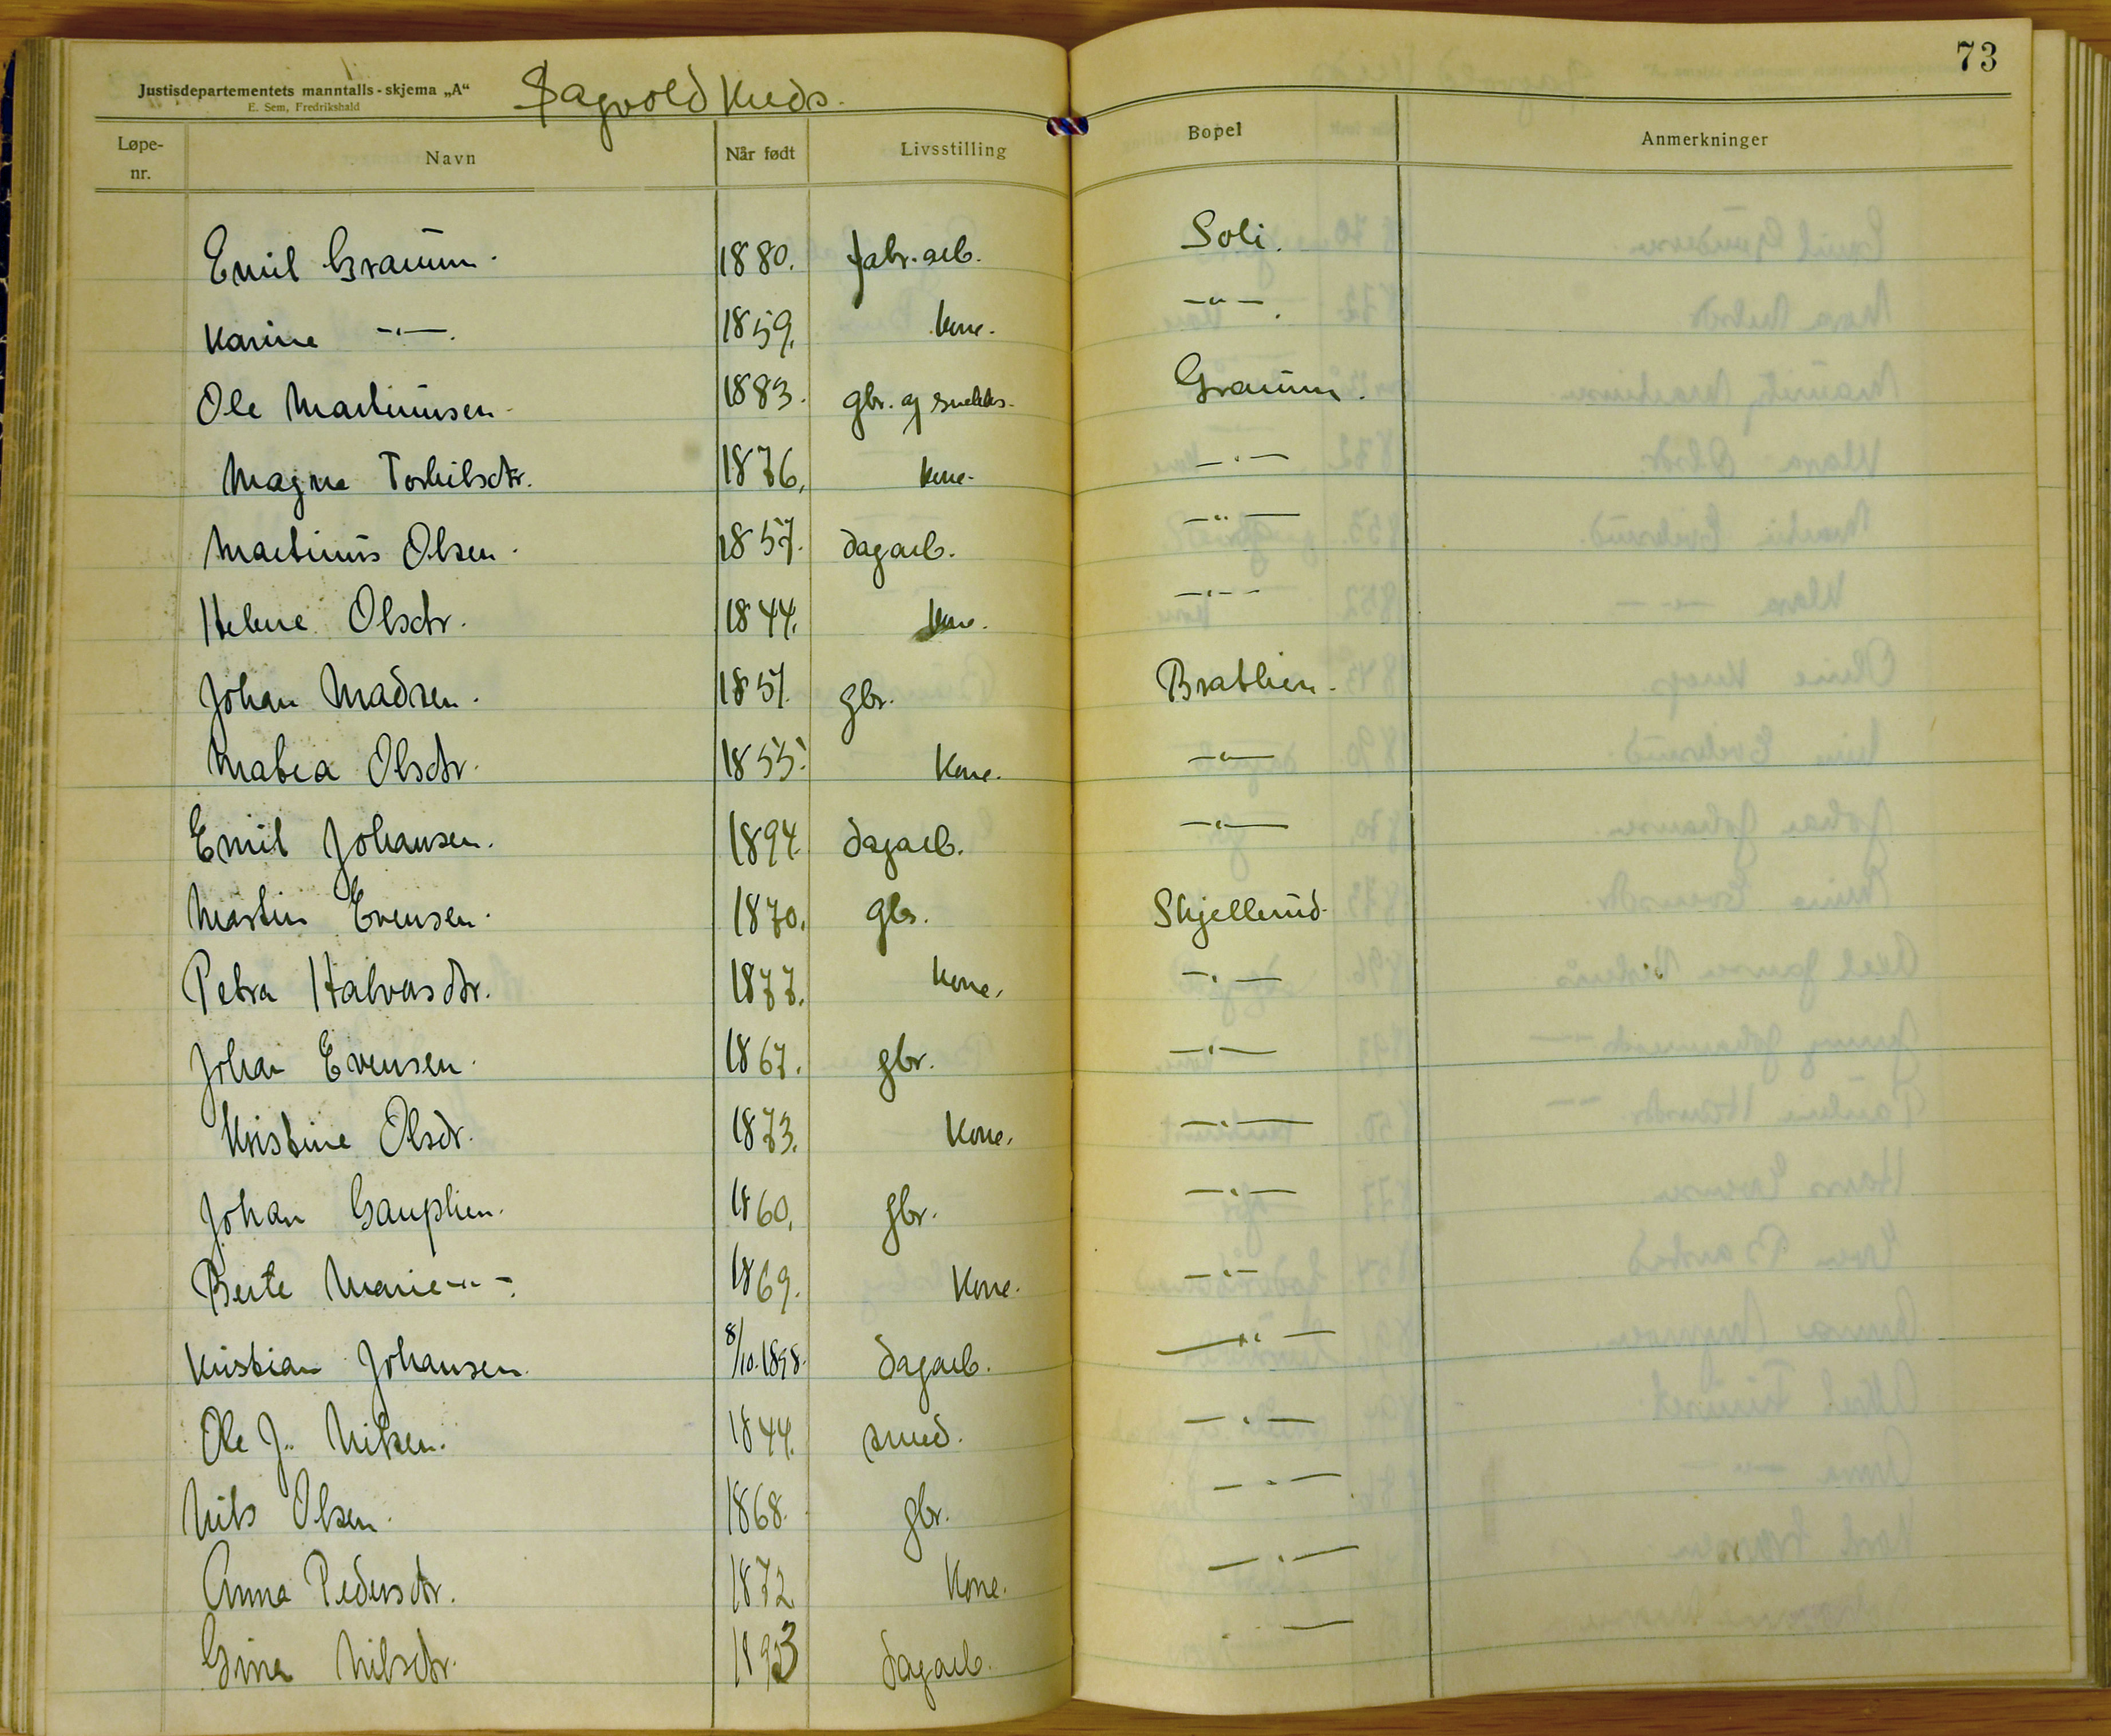 73
Justisdepartementets manntalls-skjema „A“
E. Sem, Fredrikshald
Sagvold Kreds.
Løpe-nr. Navn Når født Livsstilling Bopel Anmerkninger
Emil Graüm. 1880. fabr. arb. Soli.
Karine —"—. 1859. kone. —"—.
Ole Martinüsen. 1883. gbr. og snekker. Graüm.
Magna Torkilsdtr. 1876. kone. —"—
Martinüs Olsen. 1857. dagarb. —"—
Helene Olsdtr. 1844. kone. —"—
Johan Madsen. 1857. gbr. Brathen.
Mabea Olsdtr. 1855. Kone. —"—
Emil Johansen. 1894. dagarb. —"—
Martin Evensen. 1870. gbr. Skjellerüd.
Petra Halvorsdtr. 1877. Kone. —"—
Johan Evensen. 1867. gbr. —"—
Kristine Olsdr. 1873. Kone. —"—
Johan Gauplien. 1860. gbr. —"—
Berte Marie —"—. 1869. Kone. —"—
Kristian Johansen. 8/10.1898. dagarb. —"—
Ole J. Nilsen. 1844. smed. —"—
Nils Olsen. 1868. gbr. —"—
Anna Pedersdtr. 1872 Kone. —"—
Gina Nilsdtr. 1893 dagarb. —"—